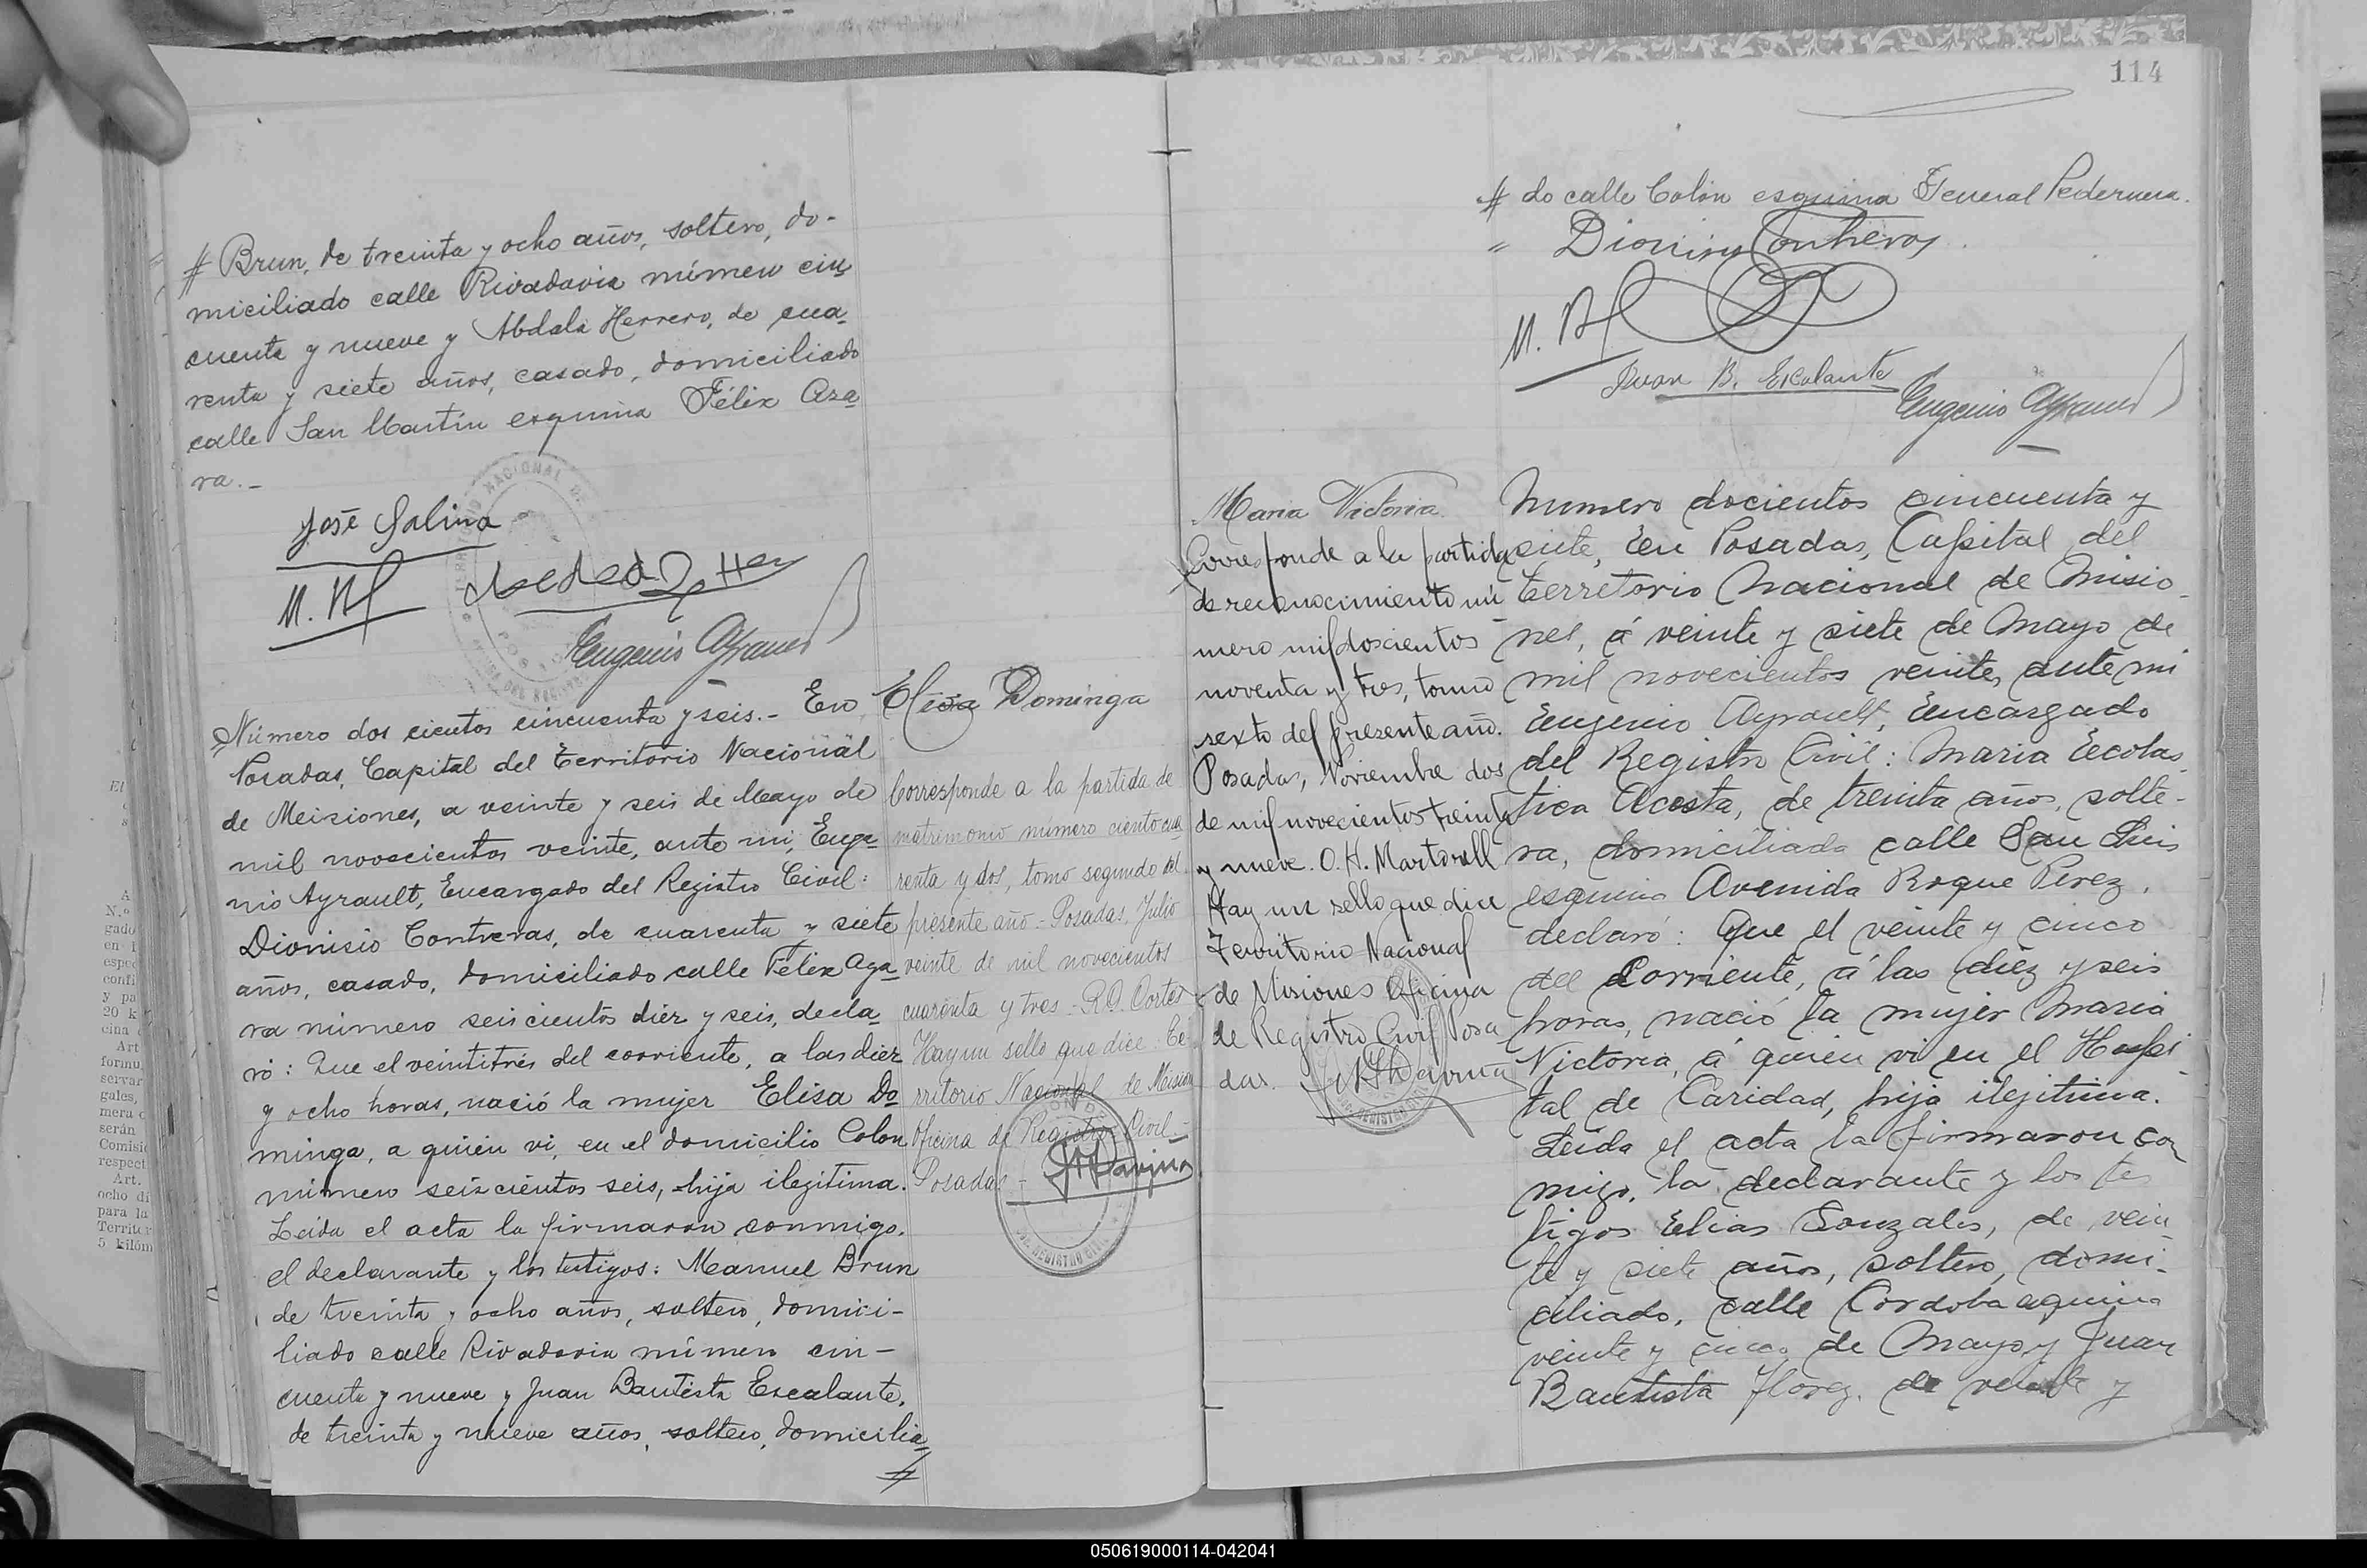 # Brun, de treinta y ocho años, soltero, do-
miciliado calle Rivadavia número cin
cuenta y nueve y Abdala Herrero, de cua-
renta y siete años, casado, domiciliado
calle San Martín esquina Félix Aza
ra.-
José Salina
M. B
Eugenio Ayrault
Número dos cientos cincuenta y seis.- En
Posadas, Capital del Territorio Nacional
de Meisiones, a veinte y seis de Mayo de
mil novecientos veinte, ante mi, Euge-
nio Ayrault, Encargado del Registro Civil:
Dionisio Contreras, de cuarenta y siete
años, casado, domiciliado calle Félix Aza
ra número seiscientos diez y seis, decla-
ró: Que el veintitrés del corriente, a las diez
y ocho horas, nació la mujer Elisa Do
minga, a quien vi, en el domicilio Colon
número seiscientos seis, hija ilegitima.
Leida el acta la firmaron conmigo,
el declarante y los testigos: Manuel Brun
de treinta y ocho años, soltero, domici-
liado calle Rivadavia número cin-
cuenta y nueve y Juan Bautista Escalante,
de treinta y nueve años, soltero, domicilia-
#
Elisa Dominga
Corresponde a la partida de
matrimonio número ciento cua
renta y dos, tomo segundo del
presente año - Posadas, Julio
veinte de mil novecientos
cuarenta y tres - R.O. Cortes
Hay un sello que dice Te-
rritorio Nacional de Mision
Oficina de Registro Civil -
Posadas -
114
# do calle Colón esquina General Pedernera.
" Dionisio Contreras
M. B
Juan B. Escalante
Eugenio Ayrault
Maria Victoria
Corresponde a la partida
de reconocimiento nú
mero mil doscientos
noventa y tres, tomo
sexto del presente año.
Posadas, Noviembre dos
de mil novecientos treinta
y nueve. O. H. Martorell
Hay un sello que dice
Territorio Nacional
de Misiones Oficina
de Registro Civil Posa
das.
Numero docientos cincuenta y
siete, En Posadas, Capital del
Territorio Nacional de Misio-
nes, á veinte y siete de Mayo de
mil novecientos veinte, ante mi
Eugenio Ayrault, Encargado
del Registro Civil: Maria Escolas-
tica Acosta, de treinta años, solte-
ra, domiciliada calle San Luis
esquina Avenida Roque Perez,
declaró: Que el veinte y cinco
del Corriente, á las diez y seis
horas, nació la mujer Maria
Victoria, á quien vi en el Hospi
tal de Caridad, hija ilegitima.
Leida el acta la firmaron con
migo, la declarante y los tes
tigos Elias Gonzales, de vein
te y siete años, soltero, domi-
ciliado, calle Cordoba esquina
veinte y cinco de Mayo y Juan
Bautista Florez, de veinte y
050619000114-042041